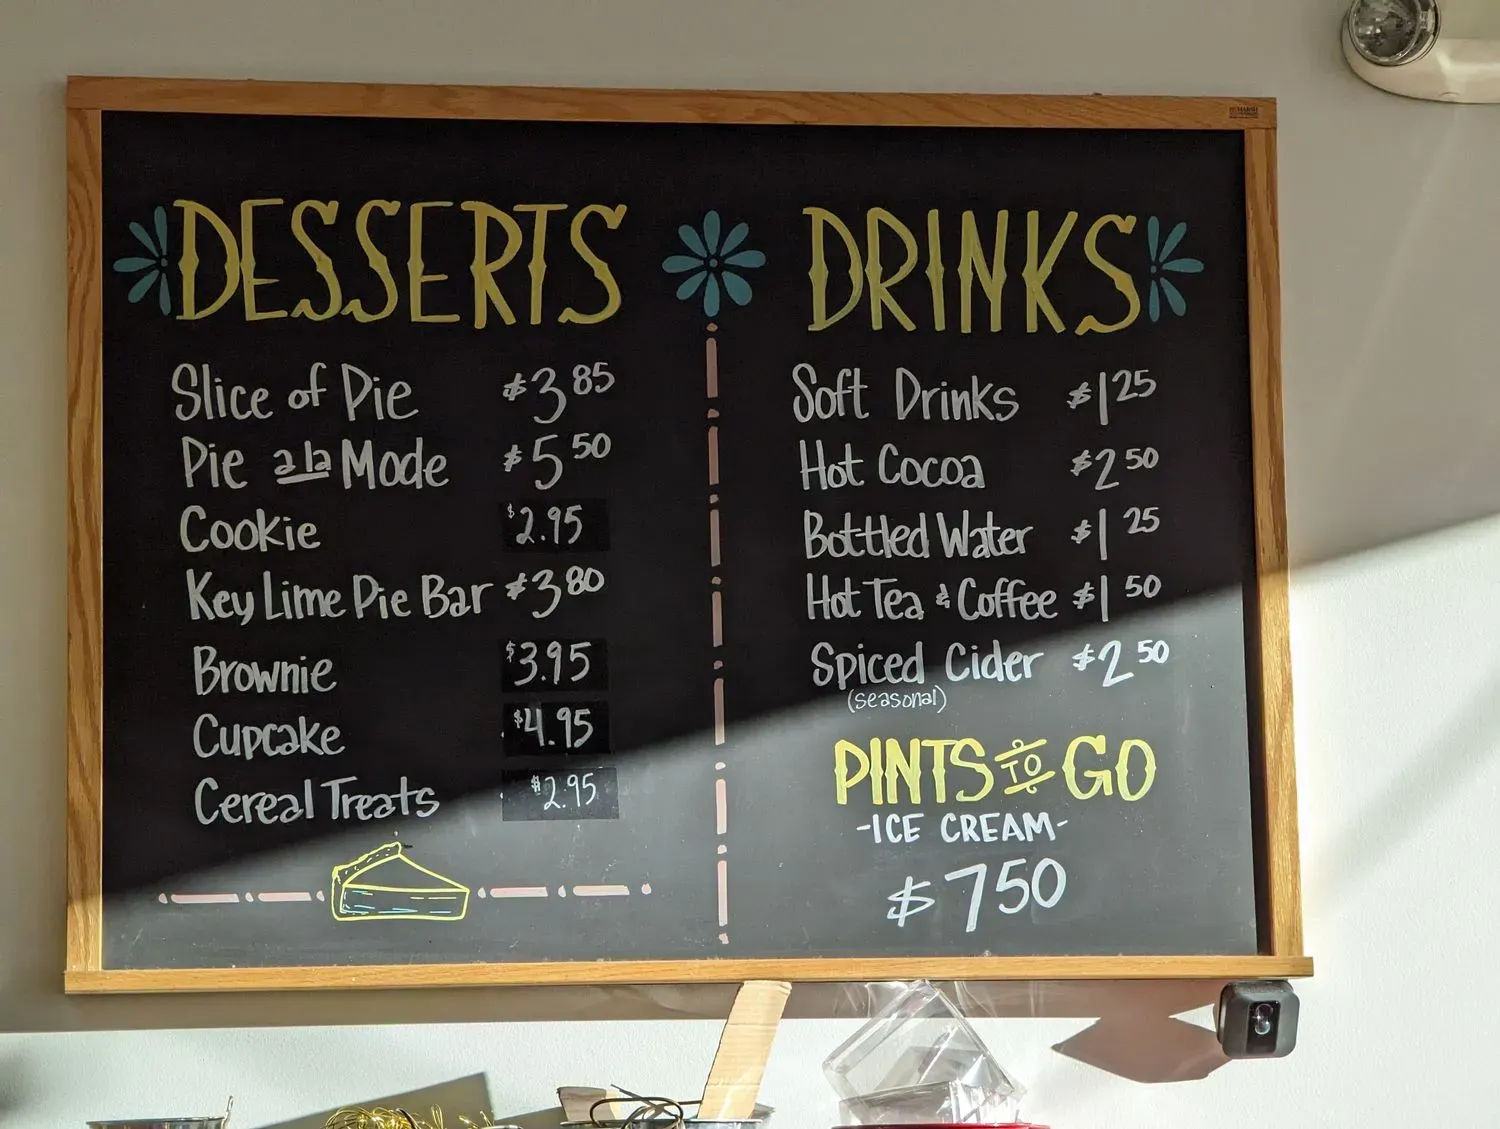 DESSERTS
Slice of Pie $3.85
Pie a la Mode $5.50
Cookie $2.95
Key Lime Pie Bar $3.80
Brownie $3.95
Cupcake $4.95
Cereal Treats $2.95
DRINKS
Soft Drinks $1.25
Hot Cocoa $2.50
Bottled Water $1.25
Hot Tea & Coffee $1.50
Spiced Cider $2.50
(seasonal)
PINTS TO GO
-ICE CREAM-
$7.50